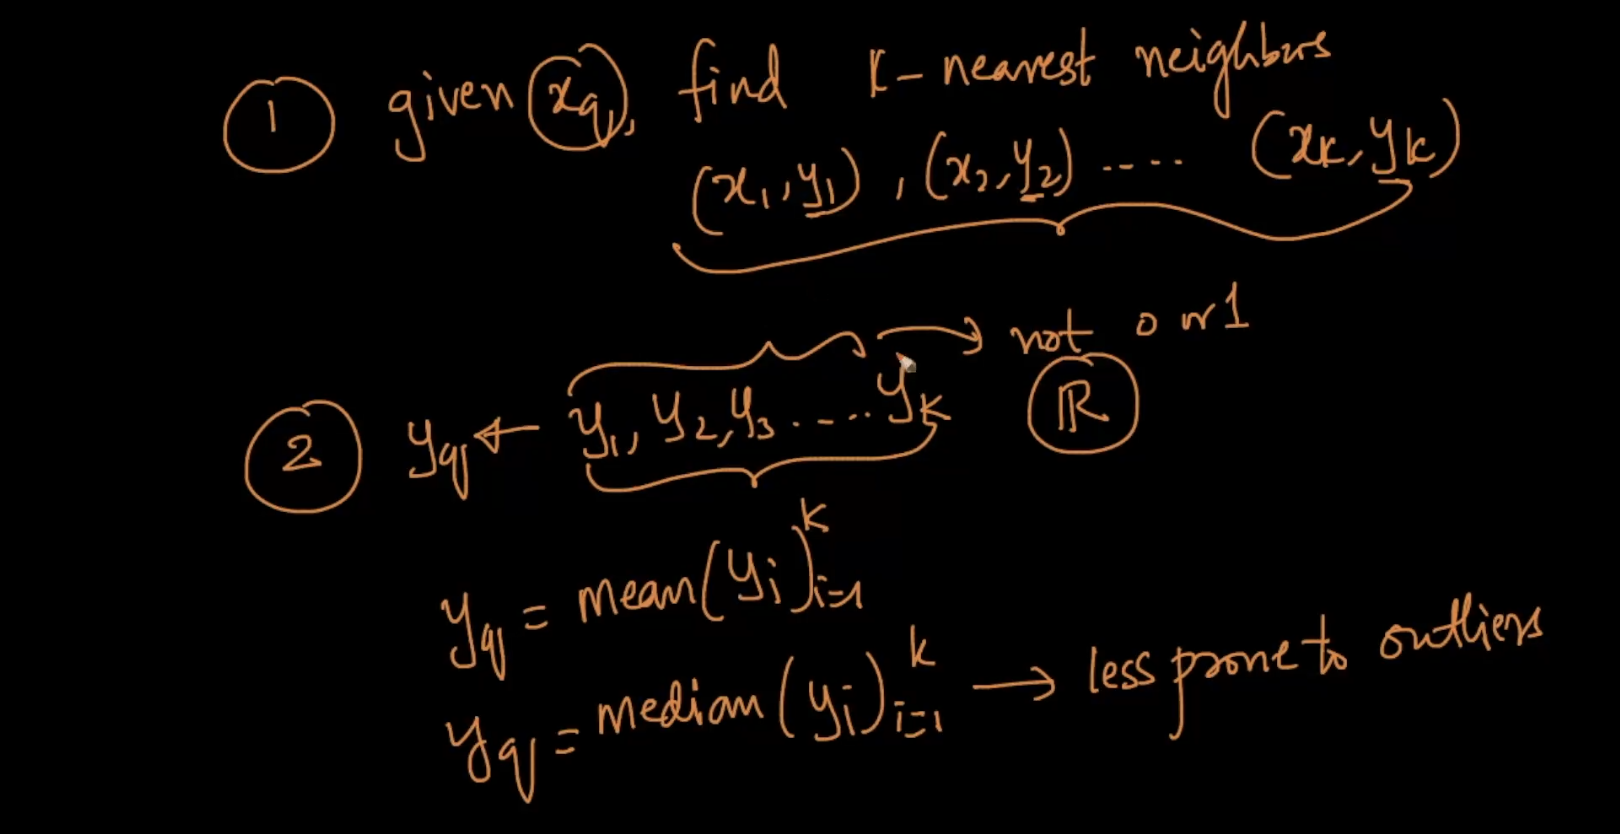 1 given xq, find K-nearest neighbors
(x1, y1), (x2, y2) .... (xK, yK)
not 0 or 1
2 yq ← y1, y2, y3 ..... yK ℝ
yq = mean(yi)ᴷi=1
yq = median(yi)ᵏi=1 → less prone to outliers